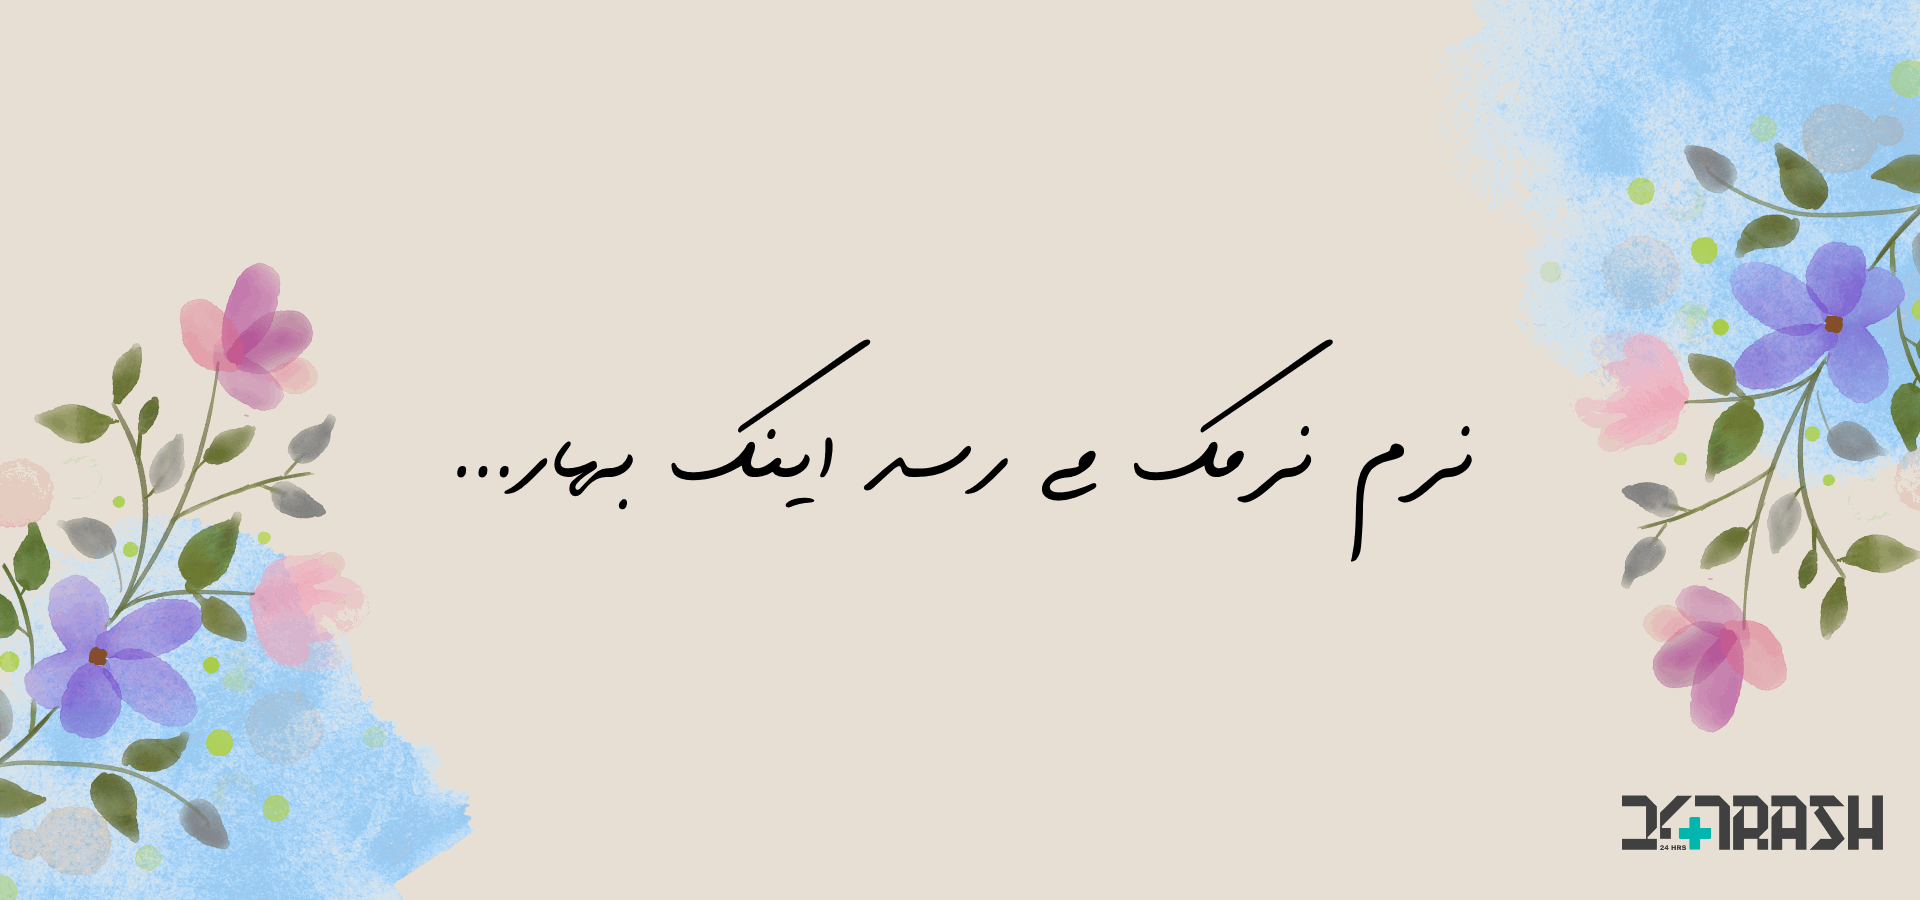 نرم نرمک می رسد اینک بهار...
24TRASH
24 HRS